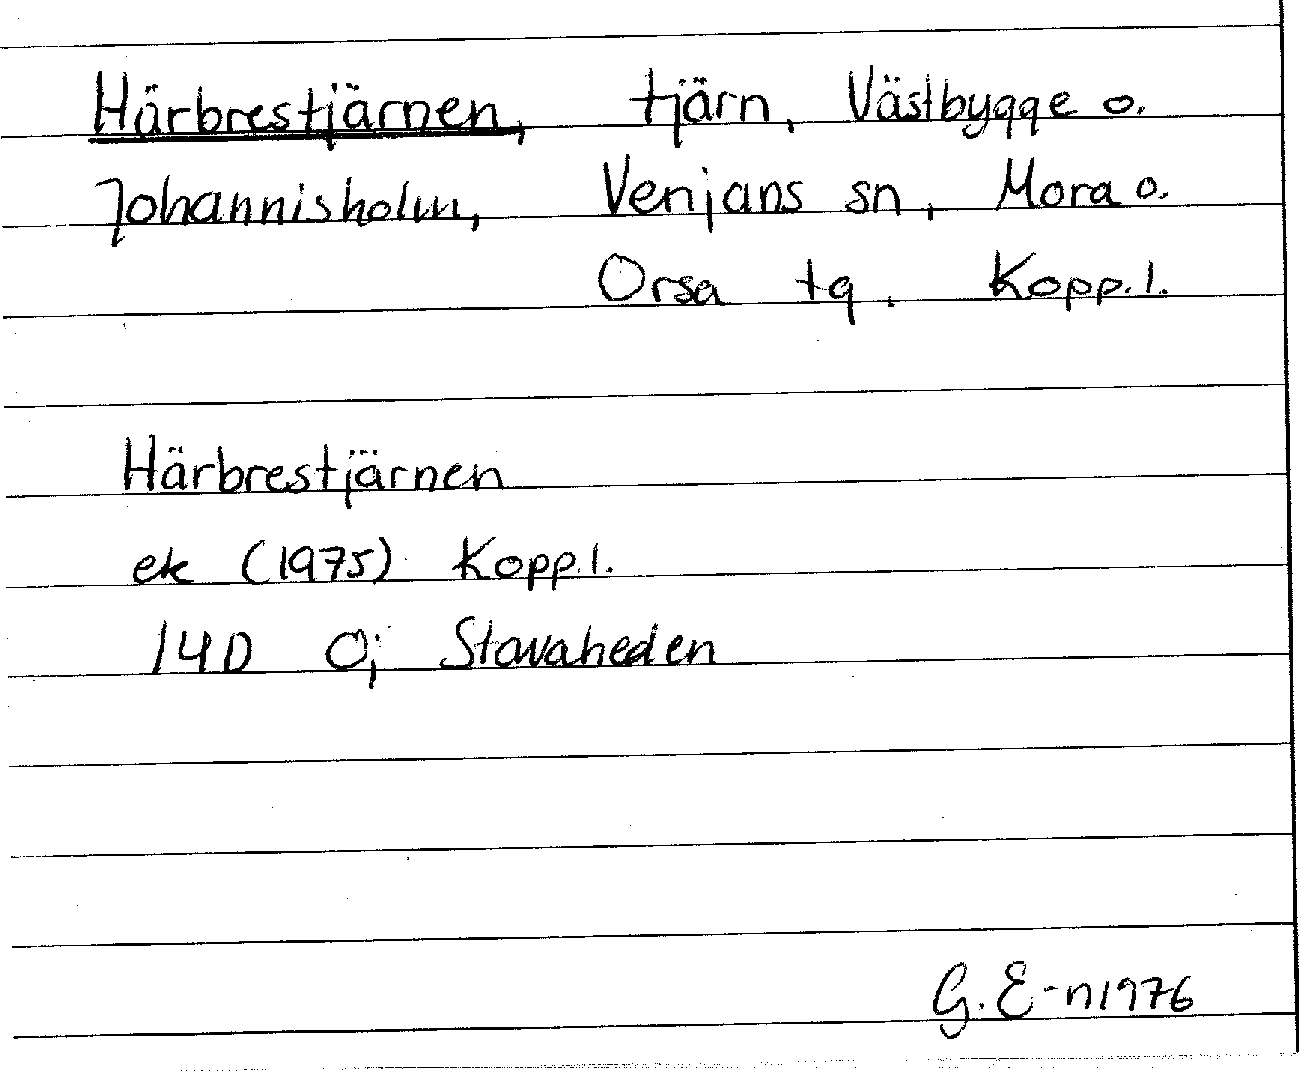 Härbrestjärnen, tjärn, Västbygge o.
Johannisholm, Venjans sn, Mora o.
Orsa tg. Kopp. l.
Härbrestjärnen
ek (1975) Kopp. l.
14D 0j Stavaheden
G. E-n 1976